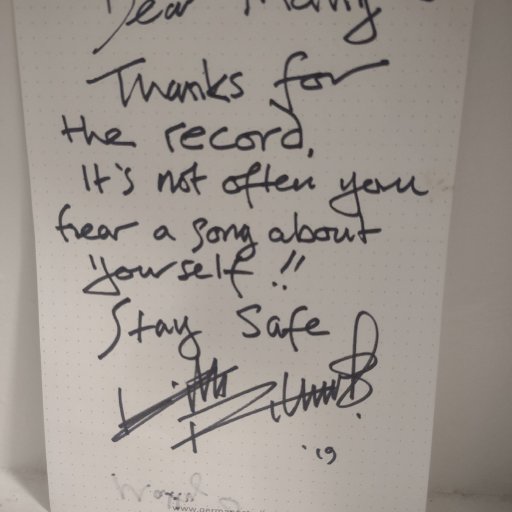 Dear
Thanks for
the record.
It's not often you
hear a song about
yourself!!
Stay Safe
'19